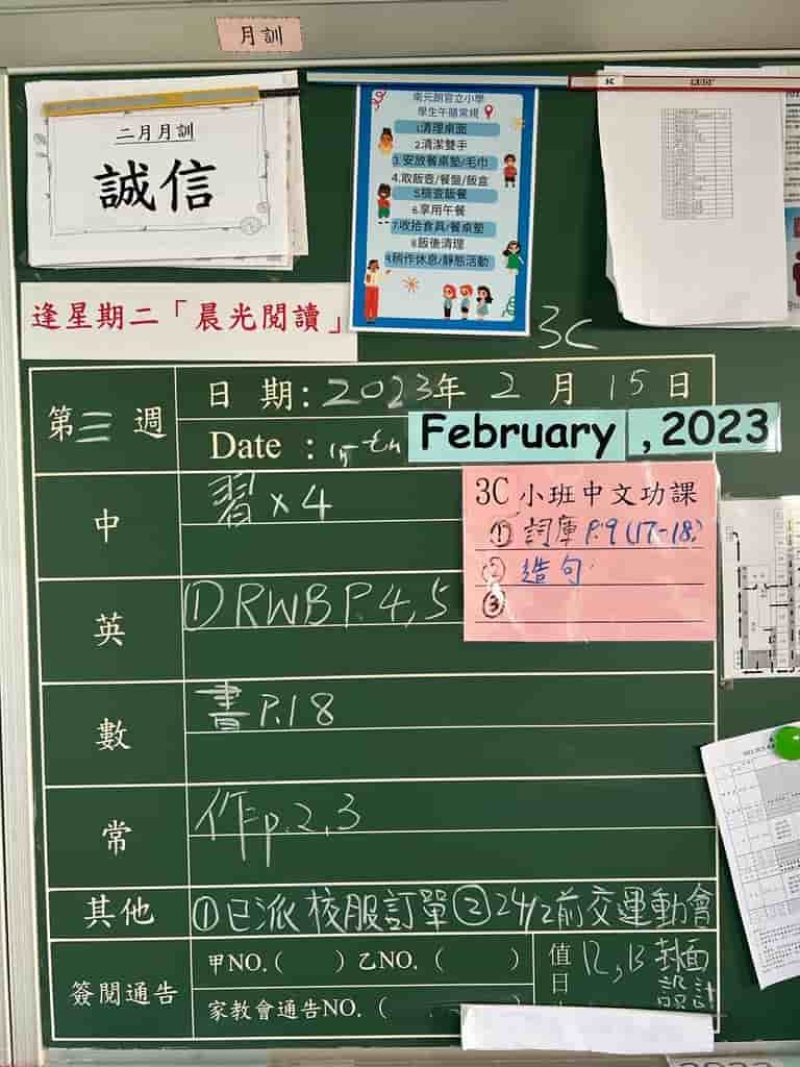 月訓
二月月訓
誠信
南元朗官立小學
學生午膳常規
1.清理桌面
2.清潔雙手
3.安放餐桌墊/毛巾
4.取飯壺/餐盤/飯盒
5.檢查飯餐
6.享用午餐
7.收拾食具/餐桌墊
8.飯後清理
9.稍作休息/靜態活動
逢星期二「晨光閱讀」
3C
第三週
日期:2023年2月15日
Date : 15th
February , 2023
中
習x4
3C小班中文功課
① 詞庫 P.9(17-18)
② 造句
③
英
① RWB P.4,5
數
書P.18
常
作p.2,3
其他
①已派校服訂單②24/2前交運動會
簽閱通告
甲NO.( )乙NO.( )
家教會通告NO.(
值日
12,13 封面
設計